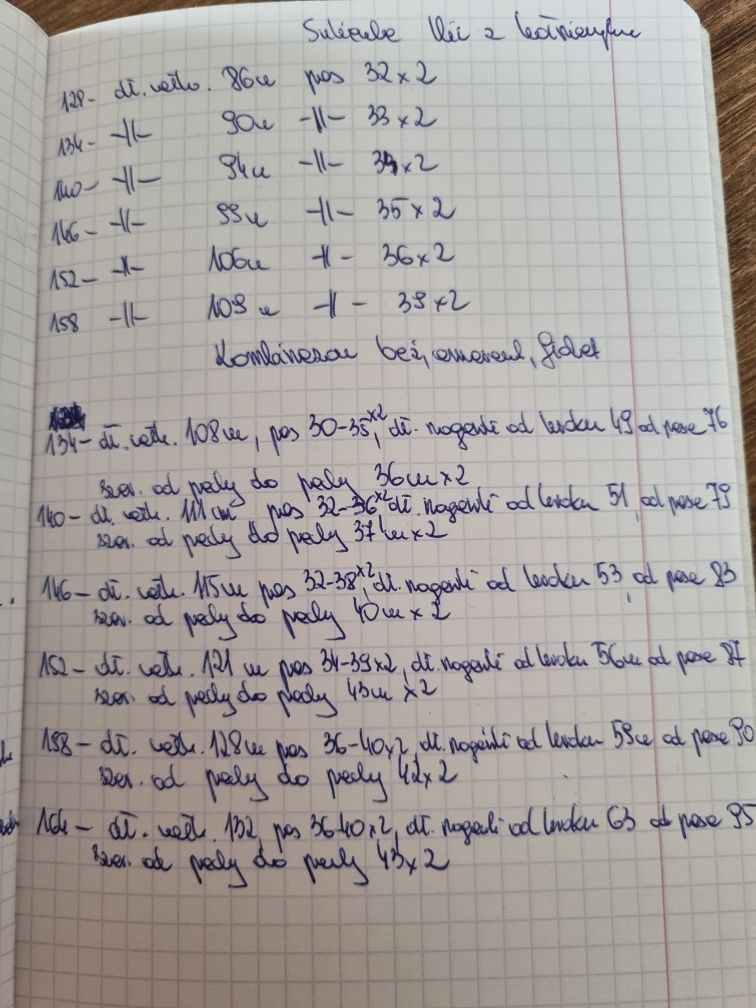 Sukienka z kołnierzykiem
128- dł. całk. 86cm pas 32×2
134- -||- 90cm -||- 33×2
140- -||- 94cm -||- 34×2
146- -||- 99cm -||- 35×2
152- -||- 106cm -||- 36×2
158 -||- 109cm -||- 39×2
Kombinezon beż, emerend, fiolet
134- dł. całk. 108cm, pas 30-35×2, dł. nogawki od kroku 49 od pasa 76
szer. od pachy do pachy 36cm×2
140- dł. całk. 111cm pas 32-36×2 dł. nogawki od kroku 51, od pasa 79
szer. od pachy do pachy 37cm×2
146- dł. całk. 115cm pas 32-38×2, dł. nogawki od kroku 53, od pasa 83
szer. od pachy do pachy 40cm×2
152- dł. całk. 121cm pas 34-39×2, dł. nogawki od kroku 56cm od pasa 87
szer. od pachy do pachy 43cm×2
158- dł. całk. 128cm pas 36-40×2, dł. nogawki od kroku 59cm od pasa 90
szer. od pachy do pachy 42×2
164- dł. całk. 132, pas 36-40×2, dł. nogawki od kroku 63 od pasa 95
szer. od pachy do pachy 43×2